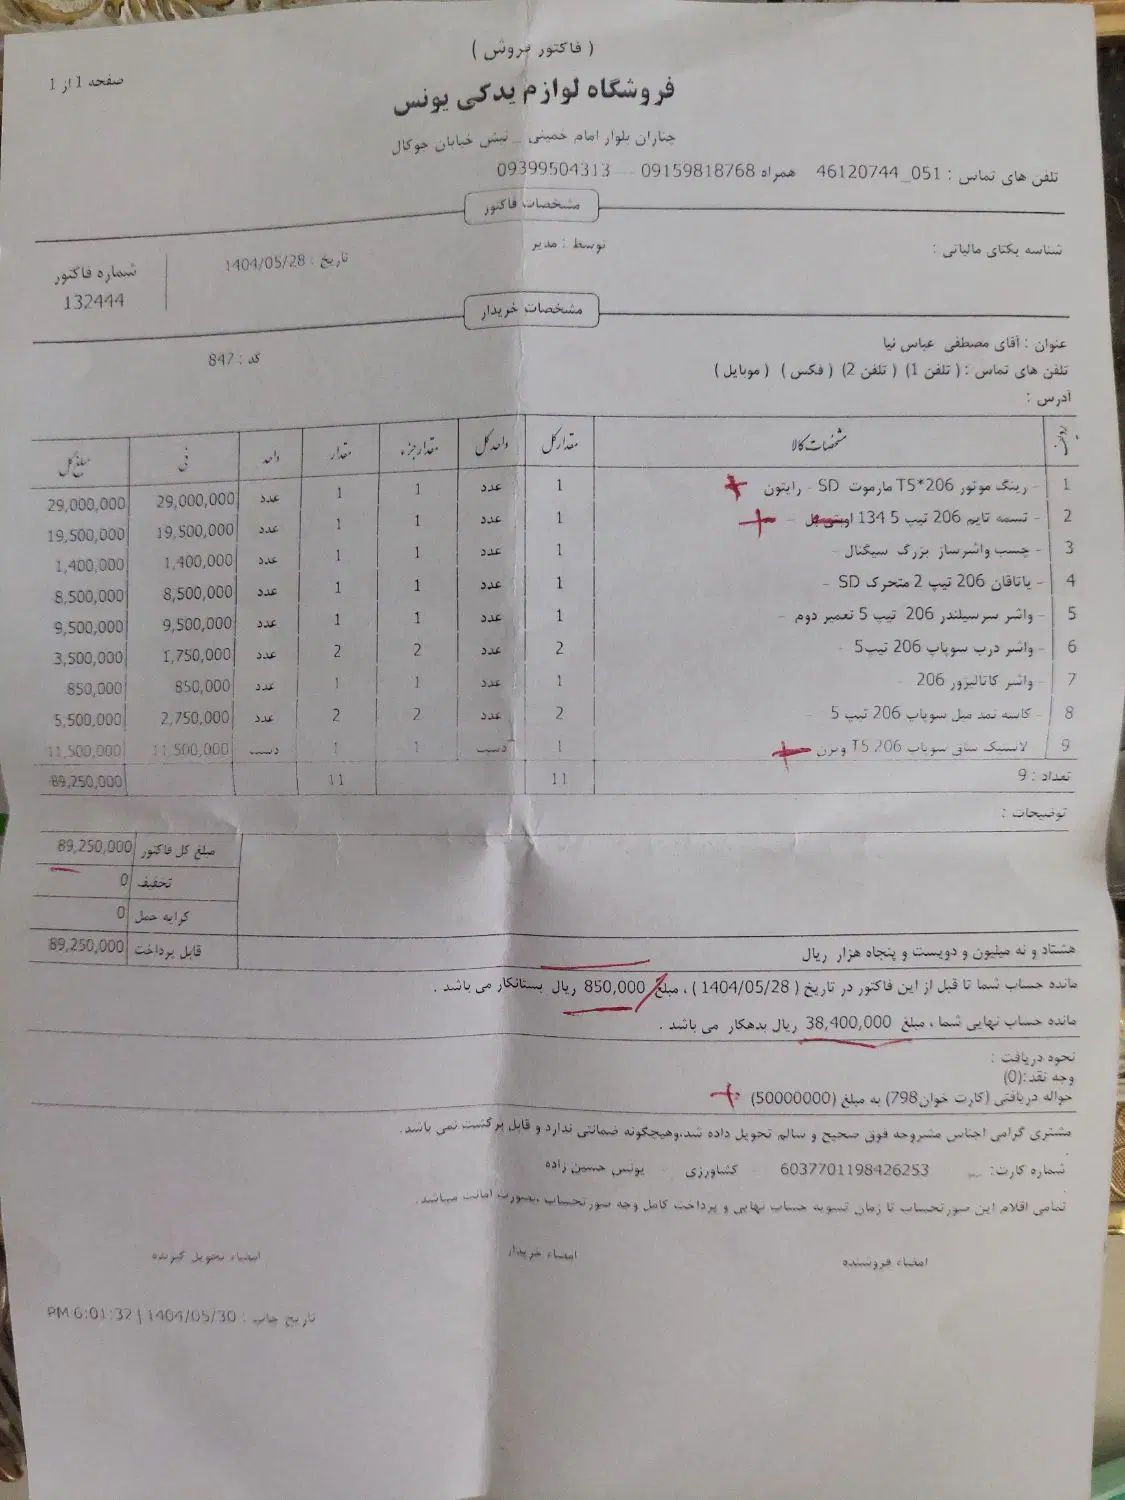 ( فاکتور فروش )
صفحه 1 از 1
فروشگاه لوازم یدکی یونس
چناران بلوار امام خمینی _ نبش خیابان جوکال
تلفن های تماس : 051_46120744 همراه 09159818768 --- 09399504313
مشخصات فاکتور
شناسه یکتای مالیاتی :
توسط : مدیر
تاریخ : 1404/05/28
شماره فاکتور
132444
مشخصات خریدار
عنوان : آقای مصطفی عباس نیا
کد : 847
تلفن های تماس : ( تلفن 1) ( تلفن 2) ( فکس ) ( موبایل )
آدرس :
ردیف مشخصات کالا مقدار کل واحد کل مقدار جزء مقدار واحد فی مبلغ کل
1 - رینگ موتور T5*206 مارموت SD - رایتون 1 عدد 1 1 عدد 29,000,000 29,000,000
2 - تسمه تایم 206 تیپ 5 134 - 1 عدد 1 1 عدد 19,500,000 19,500,000
3 - چسب واشرساز بزرگ سیگنال - 1 عدد 1 1 عدد 1,400,000 1,400,000
4 - یاتاقان 206 تیپ 2 متحرک SD - 1 عدد 1 1 عدد 8,500,000 8,500,000
5 - واشر سرسیلندر 206 تیپ 5 تعمیر دوم - 1 عدد 1 1 عدد 9,500,000 9,500,000
6 - واشر درب سوپاپ 206 تیپ5 - 2 عدد 2 2 عدد 1,750,000 3,500,000
7 - واشر کاتالیزور 206 - 1 عدد 1 1 عدد 850,000 850,000
8 - کاسه نمد میل سوپاپ 206 تیپ 5 - 2 عدد 2 2 عدد 2,750,000 5,500,000
9 لاستیک ساق سوپاپ T5 206 ویرن 1 دست 1 1 دست 11,500,000 11,500,000
تعداد : 9 11 11 89,250,000
توضیحات :
مبلغ کل فاکتور 89,250,000
تخفیف 0
کرایه حمل 0
قابل پرداخت 89,250,000
هشتاد و نه میلیون و دویست و پنجاه هزار ریال
مانده حساب شما تا قبل از این فاکتور در تاریخ ( 1404/05/28 ) ، مبلغ 850,000 ریال بستانکار می باشد .
مانده حساب نهایی شما ، مبلغ 38,400,000 ریال بدهکار می باشد .
نحوه دریافت :
وجه نقد:(0)
حواله دریافتی (کارت خوان798) به مبلغ (50000000)
مشتری گرامی اجناس مشروحه فوق صحیح و سالم تحویل داده شد،وهیچگونه ضمانتی ندارد و قابل برگشت نمی باشد.
شماره کارت: 6037701198426253 - کشاورزی - یونس حسین زاده
تمامی اقلام این صورتحساب تا زمان تسویه حساب نهایی و پرداخت کامل وجه صورتحساب ،بصورت امانت میباشد.
امضاء فروشنده امضاء خریدار امضاء تحویل گیرنده
تاریخ چاپ : 1404/05/30 | 6:01:32 PM